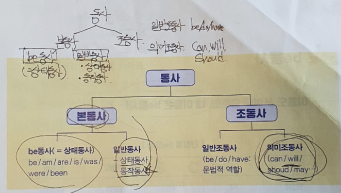 동사
본동사
조동사
일반조동사 be/do/have
의미조동사 can, will
should
be동사
일반동사
동사
본동사
조동사
be동사( = 상태동사)
be / am / are / is / was /
were / been
일반동사
상태동사
동작동사
일반조동사
(be / do / have:
문법적 역할)
의미조동사
(can / will/
should / may··